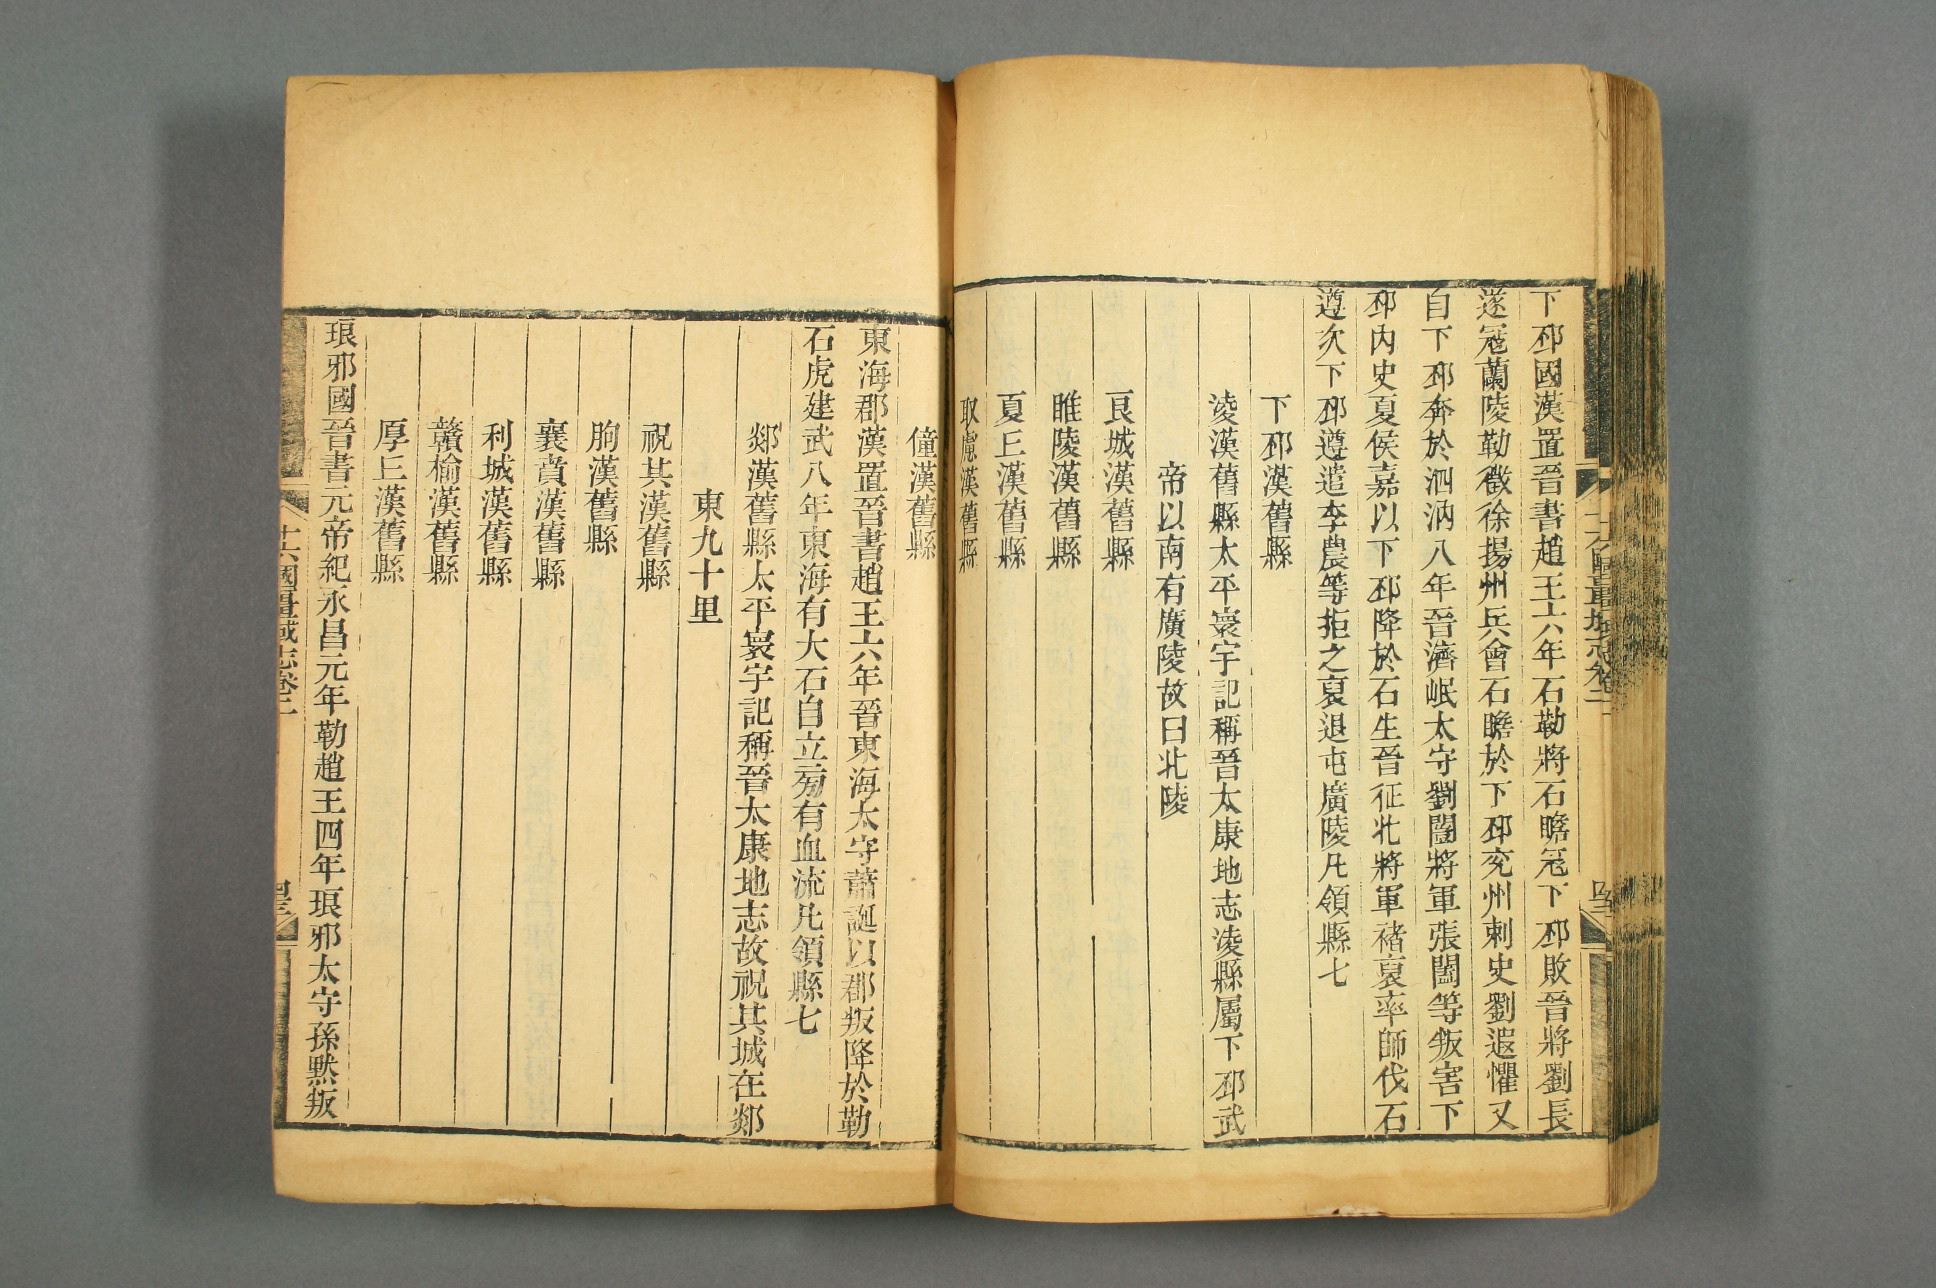 下邳國漢置晉書趙王六年石勒將石瞻寇下邳敗晉將劉長
遂寇蘭陵勒徵徐揚州兵會石瞻於下邳兖州刺史劉遐懼又
自下邳奔於泗汭八年晉濟岷太守劉闓將軍張闔等叛害下
邳內史夏侯嘉以下邳降於石生晉征北將軍褚裒率師伐石
遵次下邳遵遣李農等拒之裒退屯廣陵凡領縣七
下邳漢舊縣
淩漢舊縣太平寰宇記稱晉太康地志淩縣屬下邳武
帝以南有廣陵故曰北陵
良城漢舊縣
睢陵漢舊縣
夏丘漢舊縣
取慮漢舊縣
僮漢舊縣
東海郡漢置晉書趙王六年晉東海太守蕭誕以郡叛降於勒
石虎建武八年東海有大石自立旁有血流凡領縣七
郯漢舊縣太平寰宇記稱晉太康地志故祝其城在郯
東九十里
祝其漢舊縣
朐漢舊縣
襄賁漢舊縣
利城漢舊縣
贛榆漢舊縣
厚丘漢舊縣
琅邪國晉書元帝紀永昌元年勒趙王四年琅邪太守孫默叛
十六國疆域志卷二